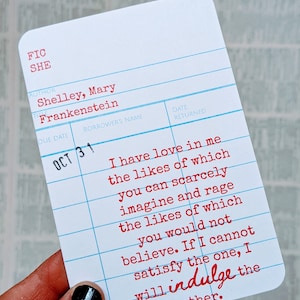 FIC
SHE
AUTHOR
Shelley, Mary
Frankenstein
DUE DATE BORROWERS NAME DATE RETURNED
OCT 31
I have love in me
the likes of which
you can scarcely
imagine and rage
the likes of which
you would not
believe. If I cannot
satisfy the one, I
will indulge the
ther.